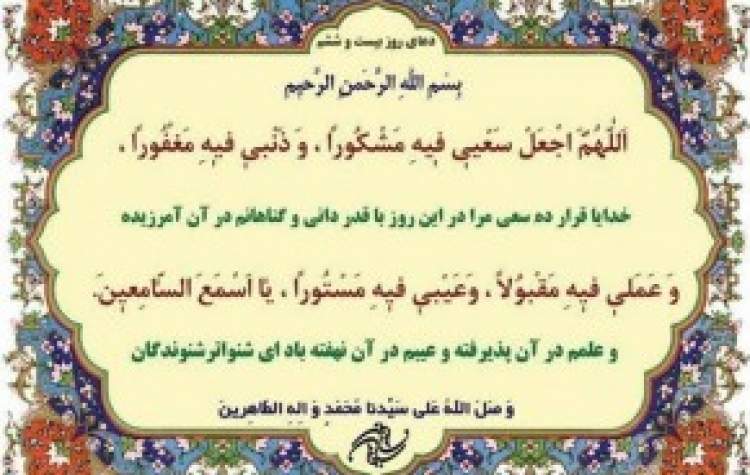 دعای روز بیست و ششم
بِسْمِ اللّٰهِ الرَّحْمنِ الرَّحیمِ
اَللّٰهُمَّ اجْعَلْ سَعْیي فیهِ مَشْکُورًا ، وَ ذَنْبي فیهِ مَغْفُورًا ،
خدایا قرار ده سعی مرا در این روز با قدر دانی و گناهانم در آن آمرزیده
وَ عَمَلي فیهِ مَقْبُولاً ، وَعَیْبي فیهِ مَسْتُورًا ، یٰا اَسْمَعَ السّٰامِعینَ.
و علمم در آن پذیرفته و عیبم در آن نهفته باد ای شنواترشنوندگان
وَ صَلَ اللهُ عَلی سَیِّدنا مُحَمَدٍ وَ الِهِ الطّاهِرینَ